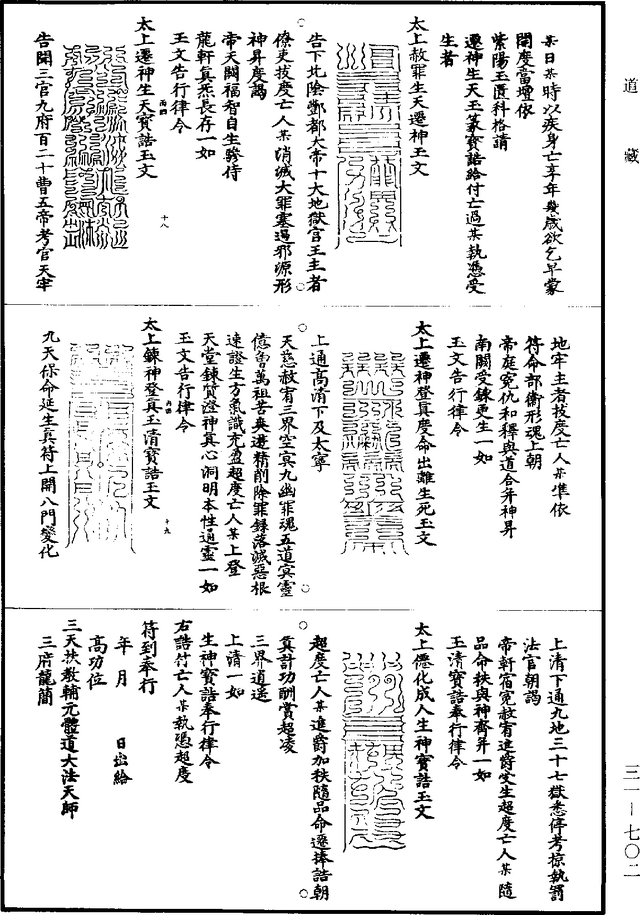 道藏
某日某時以疾身亡享年幾歲欲乞早蒙
開度當增依
紫陽玉匱科格請
遷神生天玉篆寶誥給付亡過某執憑受
生者
太上赦罪生天遷神玉文
告下北陰酆都大帝十大地獄官王主者
僚吏拔度亡人某消滅大罪塞遏邪源形
神昇度謁
帝天闕福智自生驂侍
龍軒真炁長存一如
玉文告行律令
太上遷神生天寶誥玉文
丙四
十八
告開三官九府百二十曹五帝考官天牢
地牢主者拔度亡人某準依
符命部衛形魂上朝
帝庭冤仇和釋與道合并神昇
南闕受鍊更生一如
玉文告行律令
太上遷神登真度命出離生死玉文
上通高清下及太寧
天慈赦宥三界空寞九幽罪魂五道冥靈
億曾萬祖苦爽遷精削除罪錄落滅惡根
速證生方氣識充盈超度亡人某上登
天堂鍊質澄神真心洞明本性通靈一如
玉文告行律令
太上鍊神登真玉清寶誥玉文
十九
九天保命延生真符上開八門變化
上清下通九地三十七獄悉停考掠執罰
法官朝謁
帝軒宿冤赦宥進爵受生超度亡人某隨
品命秩與神齊并一如
玉清寶誥奉行律令
太上僊化成人生神寶誥玉文
超度亡人某進爵加秩隨品命遷捧誥朝
真計功酬賞超凌
三界逍遥
上清一如
生神寶誥奉行律令
右誥付亡人某執憑超度
符到奉行
年 月 日出給
高功位
三天扶教輔元體道大法天師
三府龍簡
三一—七〇二